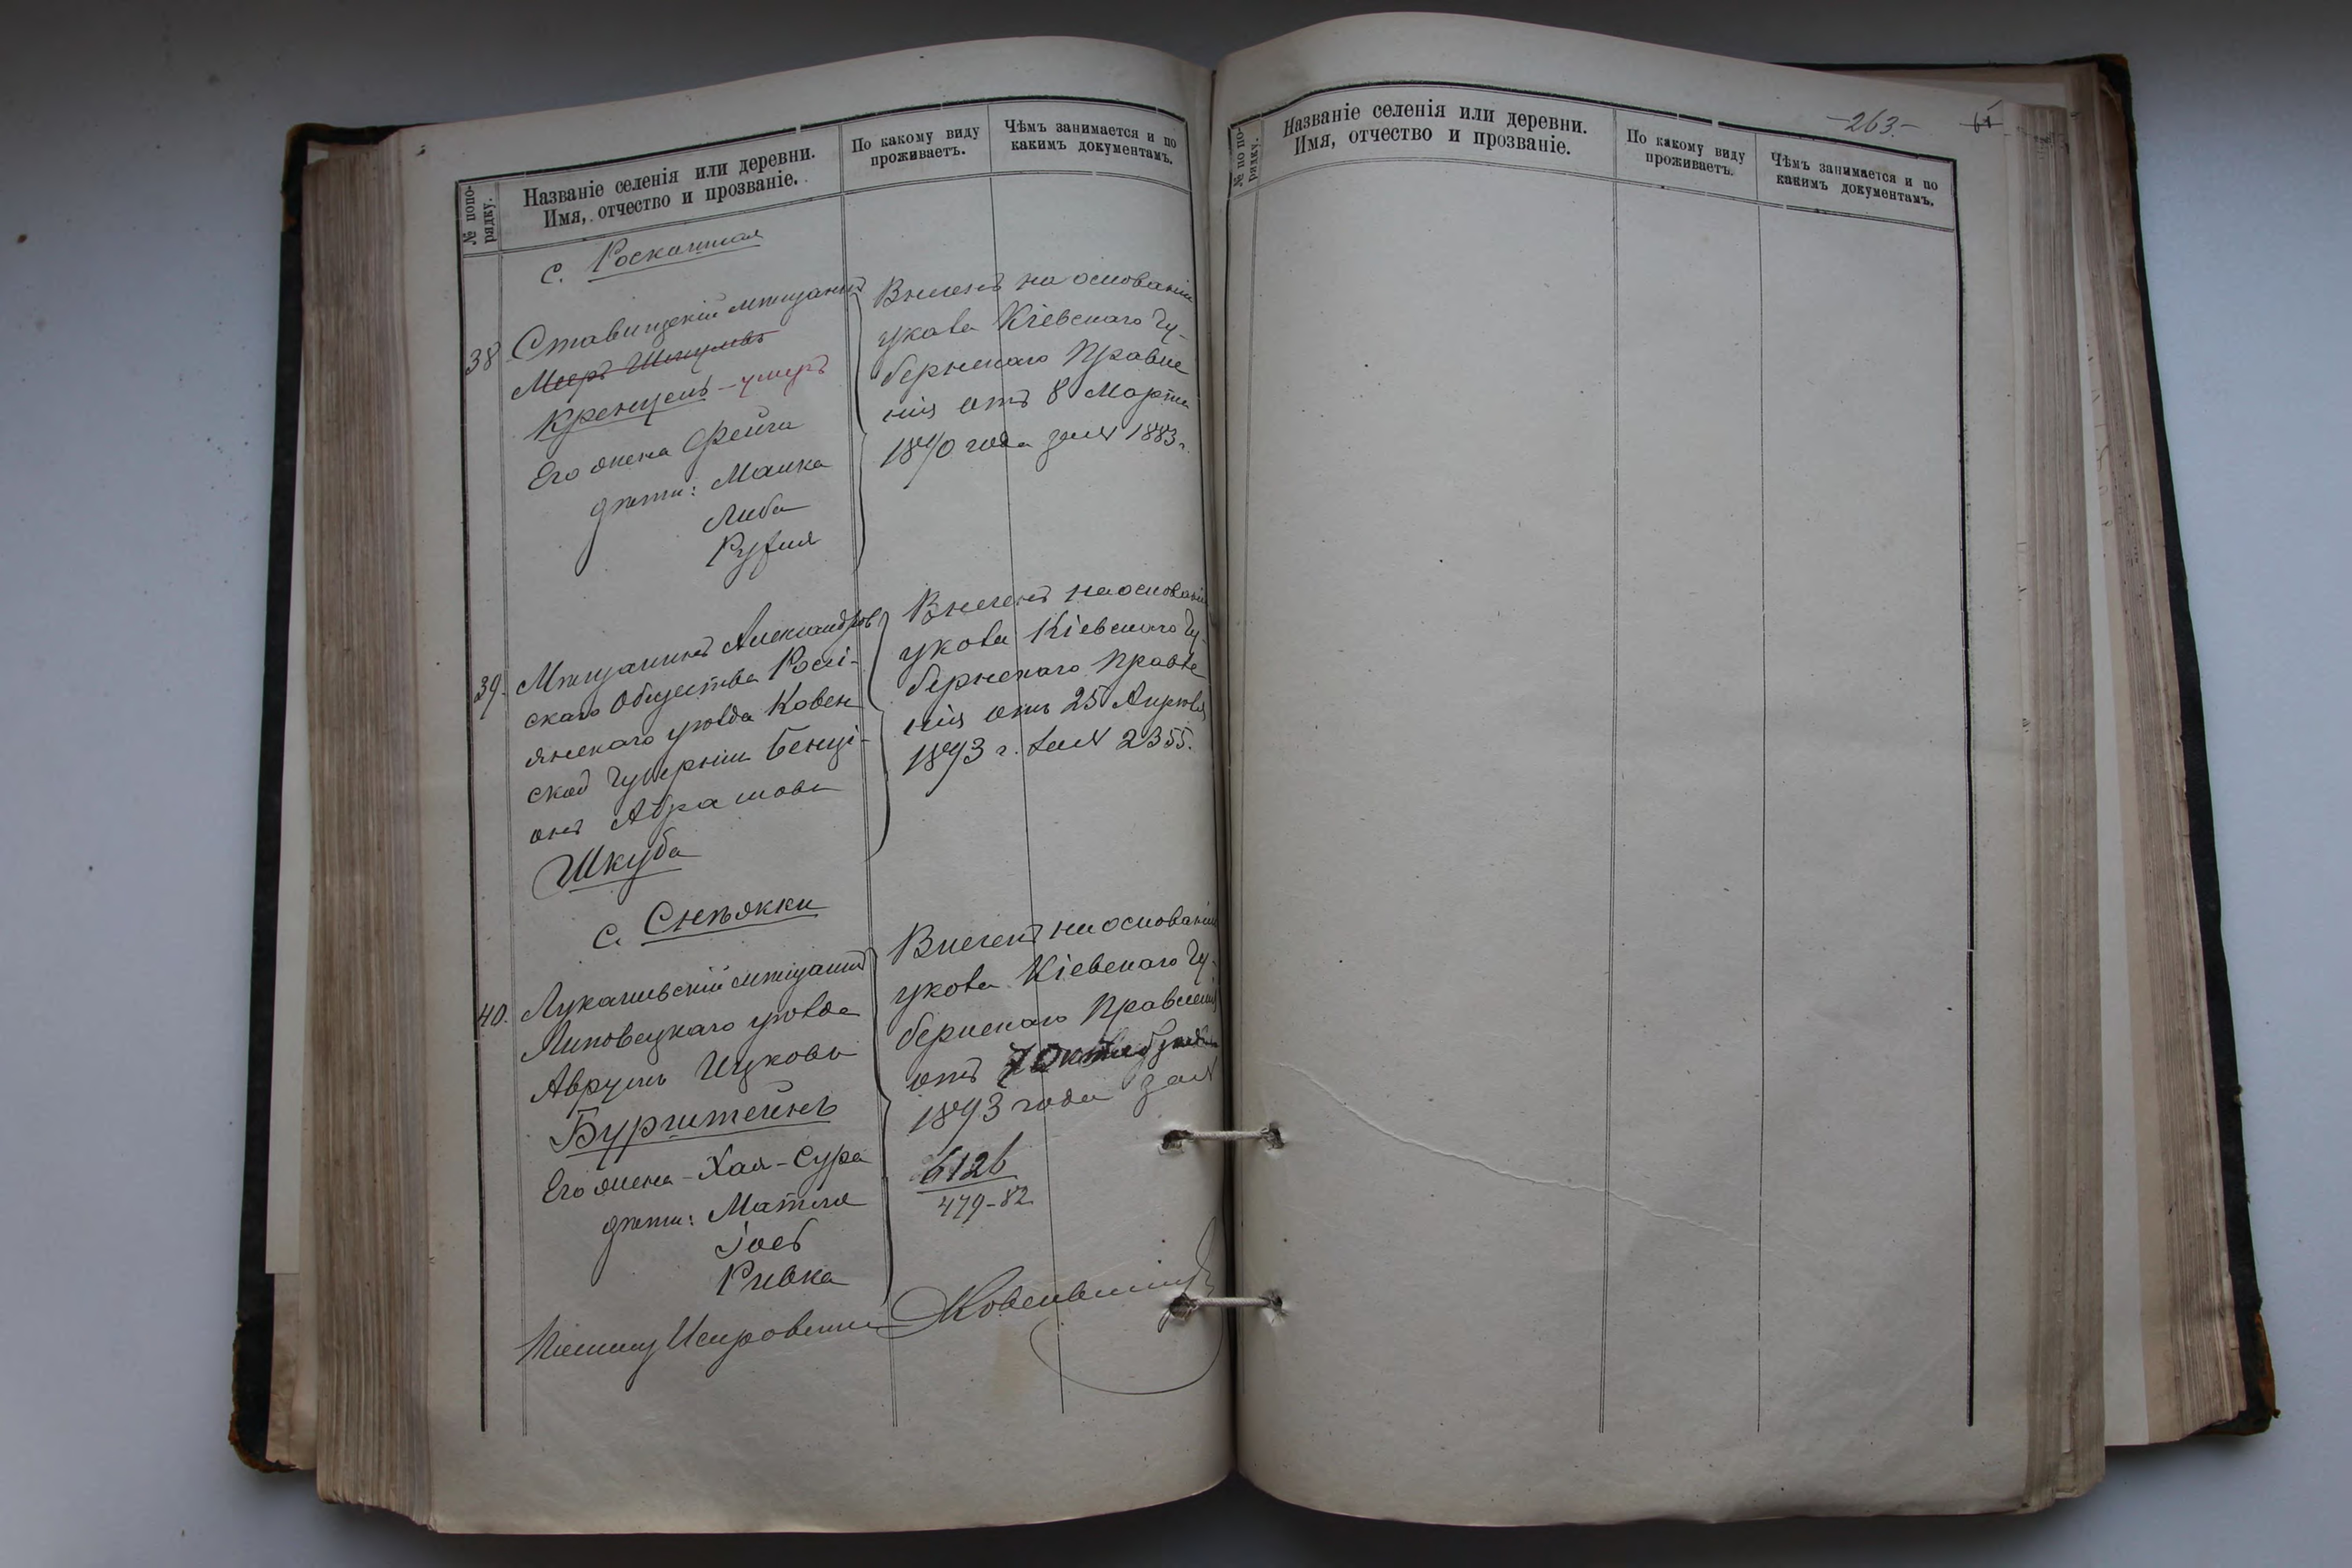 № попо-
рядку.
Названіе селенія или деревни.
Имя, отчество и прозваніе.
По какому виду
проживаетъ.
Чѣмъ занимается и по
какимъ документамъ.
с. Роскошная
38 Ставищскій мѣщанинъ
Мееръ Шмулевъ
Кренцель - умеръ
Его жена Фейга
дѣти: Малка
Либа
Рухля
Внесенъ на основаніи
указа Кіевскаго Гу-
бернскаго Правле
нія отъ 8 Марта
1890 года за № 1883 г.
39. Мѣщанинъ Александров
скаго Общества Росі-
янскаго уѣзда Ковен
ской Губерніи Бенці-
онъ Абрамовъ
Шкуба
Внесенъ на основаніи
указа Кіевскаго Гу-
бернскаго Правле
нія отъ 25 Апрѣля
1893 г. за № 2355.
с. Снѣжки
40. Лукашевскій мѣщанинъ
Липовецкаго уѣзда
Аврумъ Ицковъ
Бурштейнъ
Его жена - Хая-Сура
дѣти: Матля
Іосъ
Ривка
Внесенъ на основаніи
указа Кіевскаго Гу-
бернскаго Правленія
отъ 7 Октября
1893 года за №
6126
479-82.
№ по по-
рядку.
Названіе селенія или деревни.
Имя, отчество и прозваніе.
По какому виду
проживаетъ.
Чѣмъ занимается и по
какимъ документамъ.
-263.-